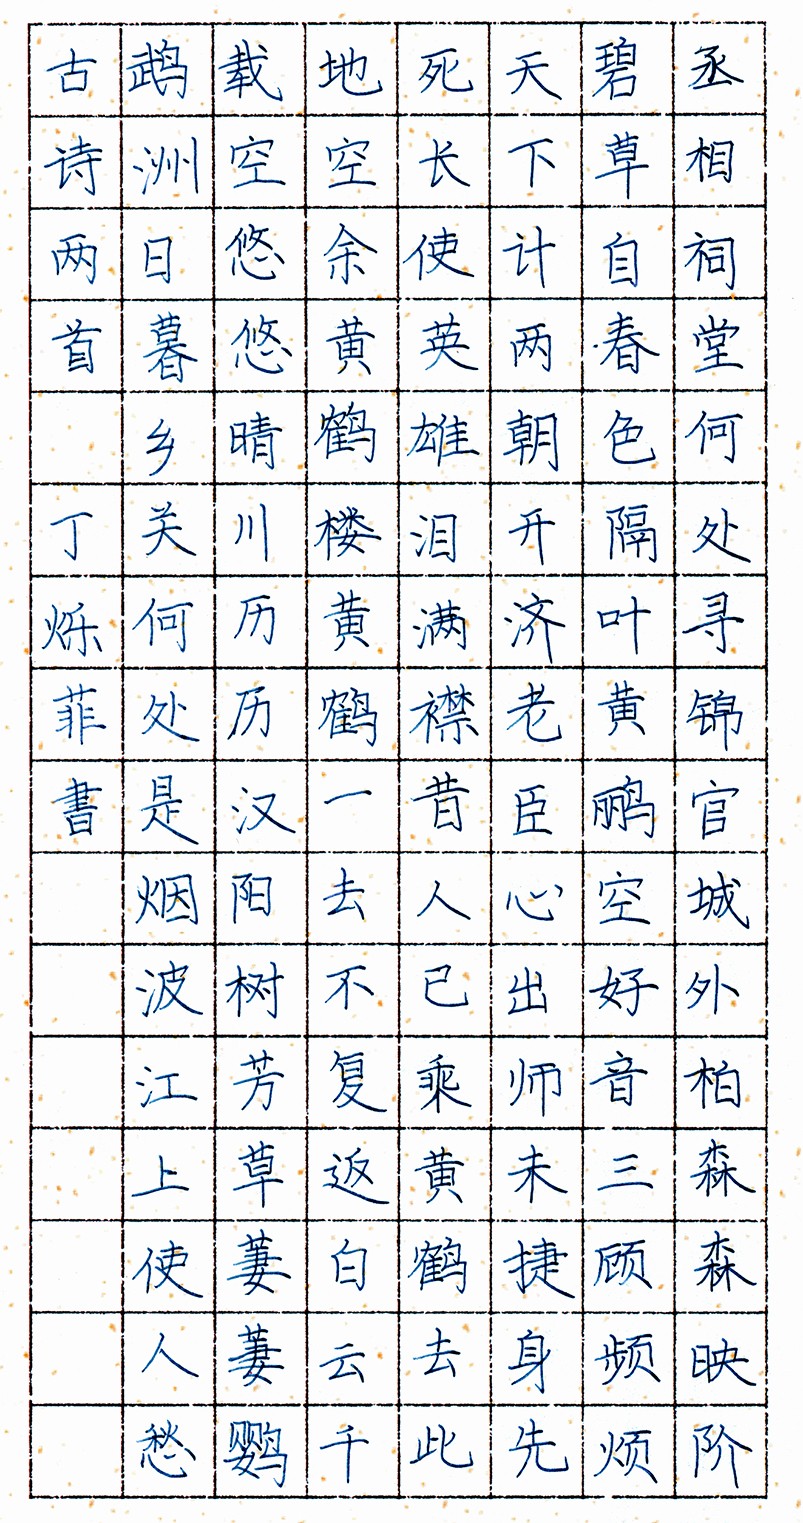 丞相祠堂何处寻锦官城外柏森森映阶
碧草自春色隔叶黄鹂空好音三顾频烦
天下计两朝开济老臣心出师未捷身先
死长使英雄泪满襟昔人已乘黄鹤去此
地空余黄鹤楼黄鹤一去不复返白云千
载空悠悠晴川历历汉阳树芳草萋萋鹦
鹉洲日暮乡关何处是烟波江上使人愁
古诗两首 丁烁菲書